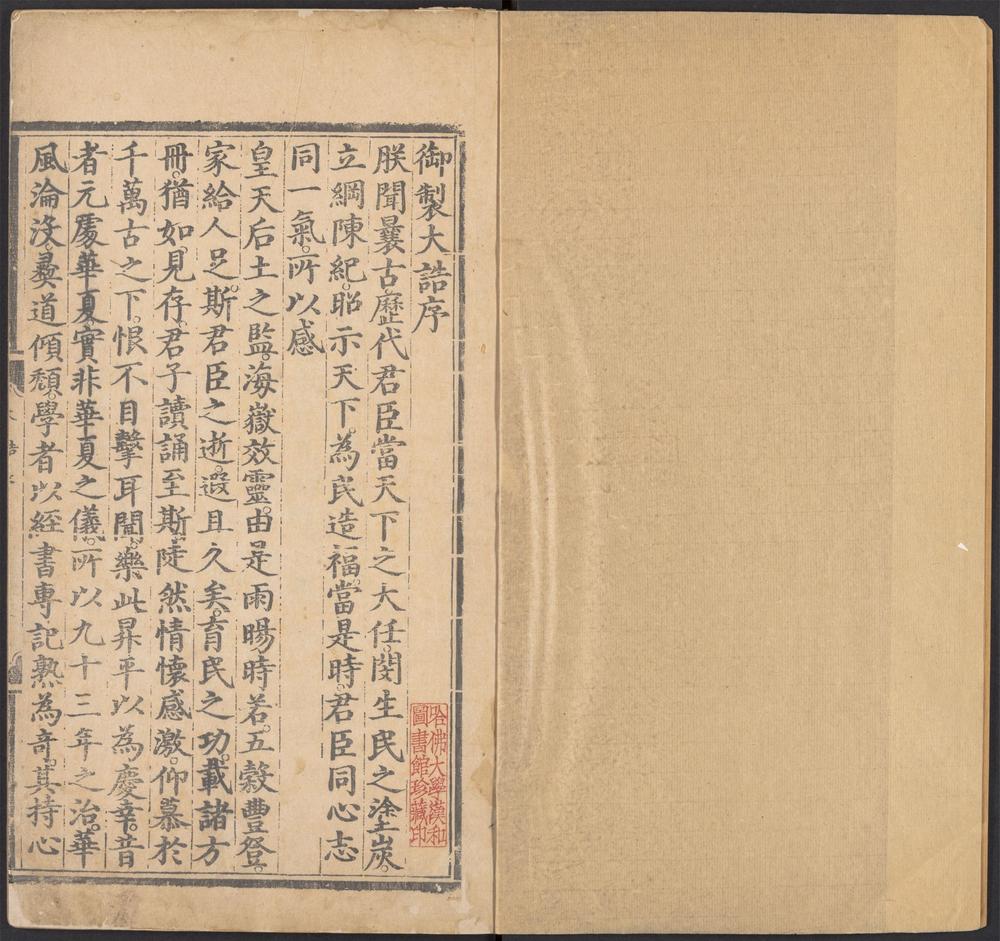 御製大誥序
朕聞曩古歷代君臣當天下之大任閔生民之塗炭
立綱陳紀昭示天下為民造福當是時君臣同心志
同一氣所以感
皇天后土之監海嶽效靈由是雨暘時若五穀豐登
家給人足斯君臣之逝遐且久矣育民之功載諸方
冊猶如見存君子讀誦至斯陡然情懷感激仰慕於
千萬古之下恨不目擊耳聞樂此昇平以為慶幸昔
者元處華夏實非華夏之儀所以九十三年之治華
風淪沒彝道傾頹學者以經書專記熟為奇其持心
哈佛大學漢和
圖書館珍藏印